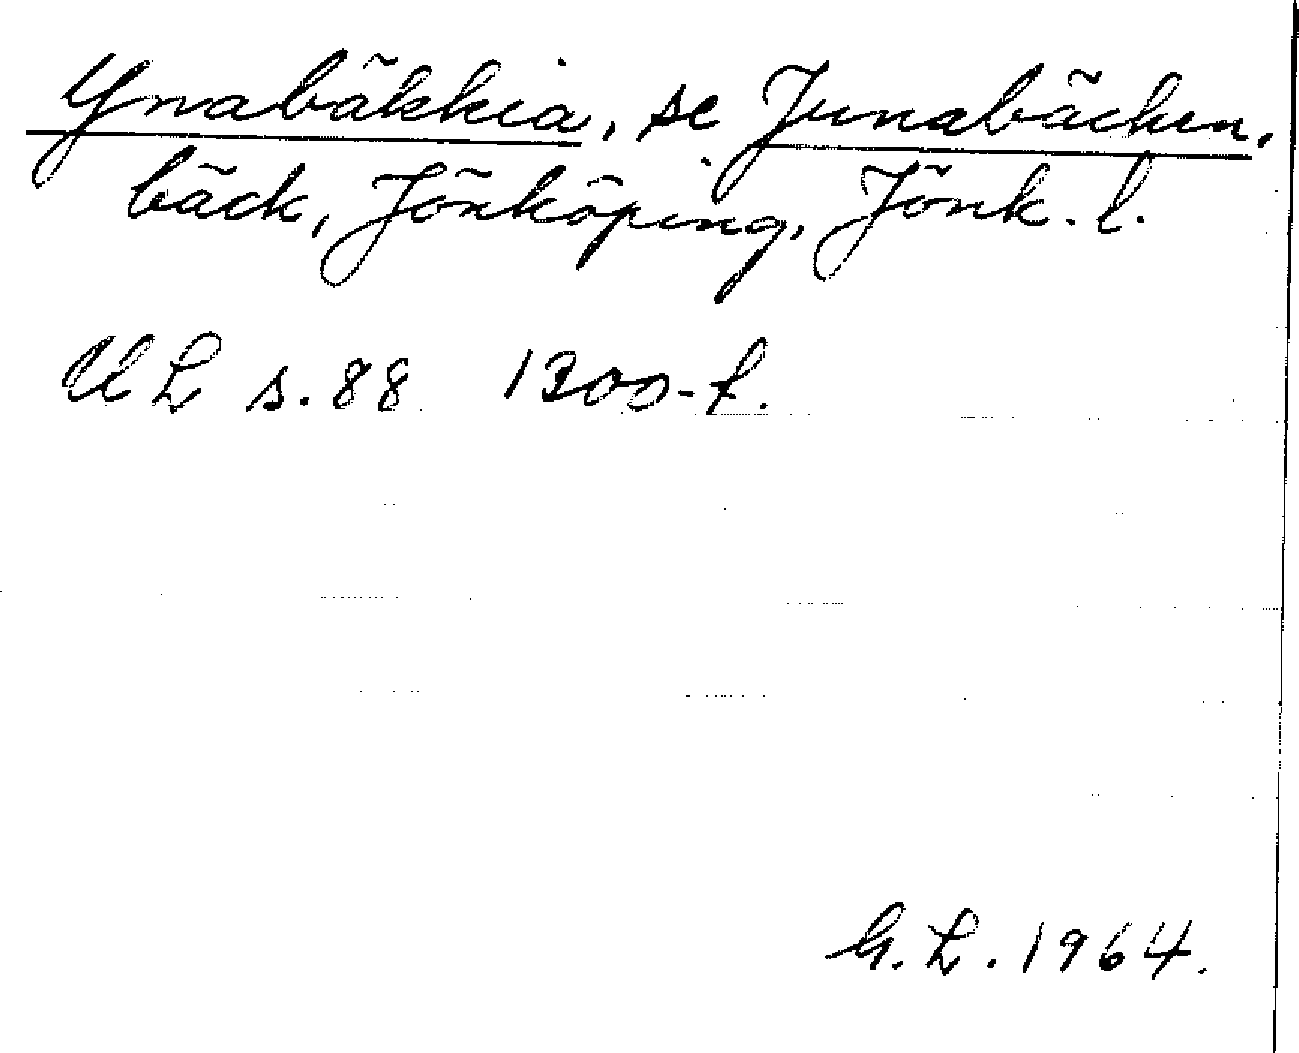 Ynabäkkia, se Junabäcken,
bäck, Jönköping, Jönk. l.
UL s. 88 1300-t.
G. L. 1964.